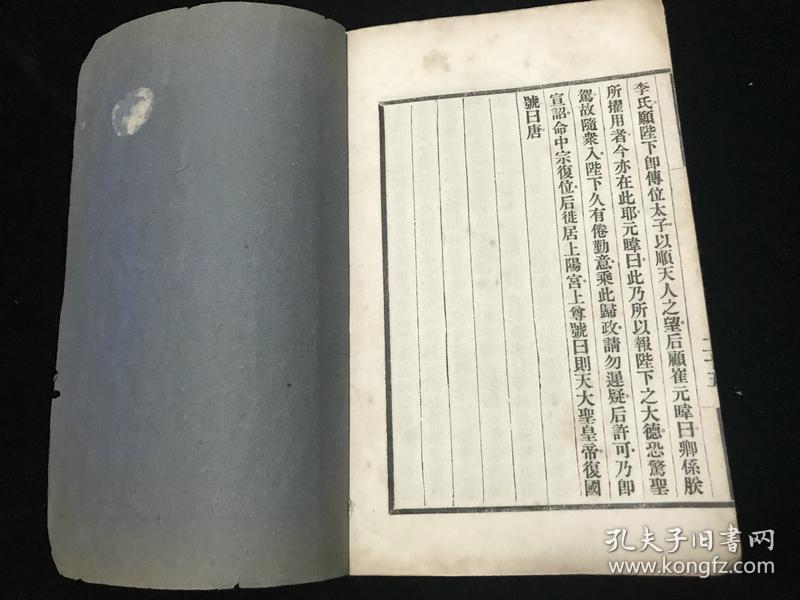 李氏願陛下即傳位太子以順天人之望。后顧崔元暐曰卿係朕
所擢用者今亦在此耶。元暐曰此乃所以報陛下之大德。恐驚聖
駕故隨衆入。陛下久有倦勤意。乘此歸政。請勿遲疑。后許可。乃即
宣詔命中宗復位。后徙居上陽宮。上尊號曰則天大聖皇帝。復國
號曰唐
孔夫子旧书网
www.kongfz.com